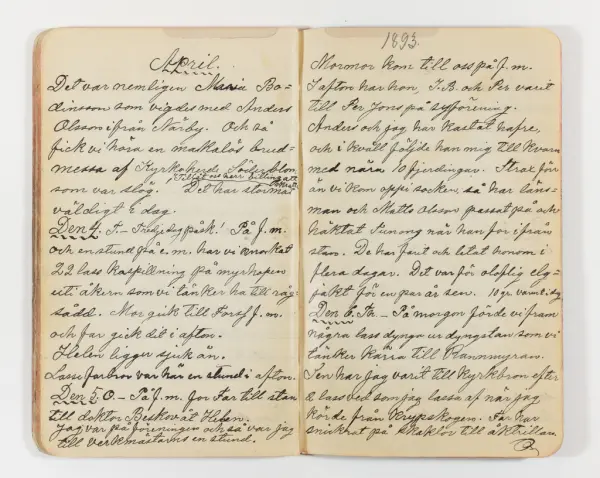 April.
Det var nemligen Maria Bo=
dinsson som vigdes med Anders
Olsson ifrån Närby. Och så
fick vi höra en makalös brud=
messa af Kyrkoherde Söderblom
som var slög! Det har stormat
väldigt i dag.
Den 4. T. - Tredjedag påsk! På f. m.
och en stund på e. m. har vi vrakat
22 lass kospillning på myrhopen
uti åkern som vi tänker ha till råg=
sådd. Mor gick till Fors f. m.
och far gick dit i afton.
Helen ligger sjuk än.
Lasse farbror var här en stund i afton.
Den 5. O. - På f. m. for Far till stan
till doktor Beskow åt Helen.
Jag var på föreningen och så var jag
till verkmästarns en stund.
1893.
Mormor kom till oss på f. m.
I afton har hon, J. B. och Per varit
till Per Jons på syförening.
Anders och jag har kastat hafre,
och i kväll följde han mig till kvarn
med nära 10 fjerdingar. Strax för
än vi kom opp i socken, så har läns=
man och Matts Olsson passat på och
häktat när han for ifrån
stan. De har farit och letat honom i
flera dagar. Det var för oloflig elg=
jakt för en par år sen. 10 gr. varmt i dag
Den 6. Th. - På morgon förde vi fram
några lass dynga ur dyngstan som vi
tänker köra till Rannmyran.
Sen har jag varit till Kyrkbron efter
lass ved som jag lassa af när jag
körde från Krypskogen. Far har
snickrat på skaklor till åktrillan